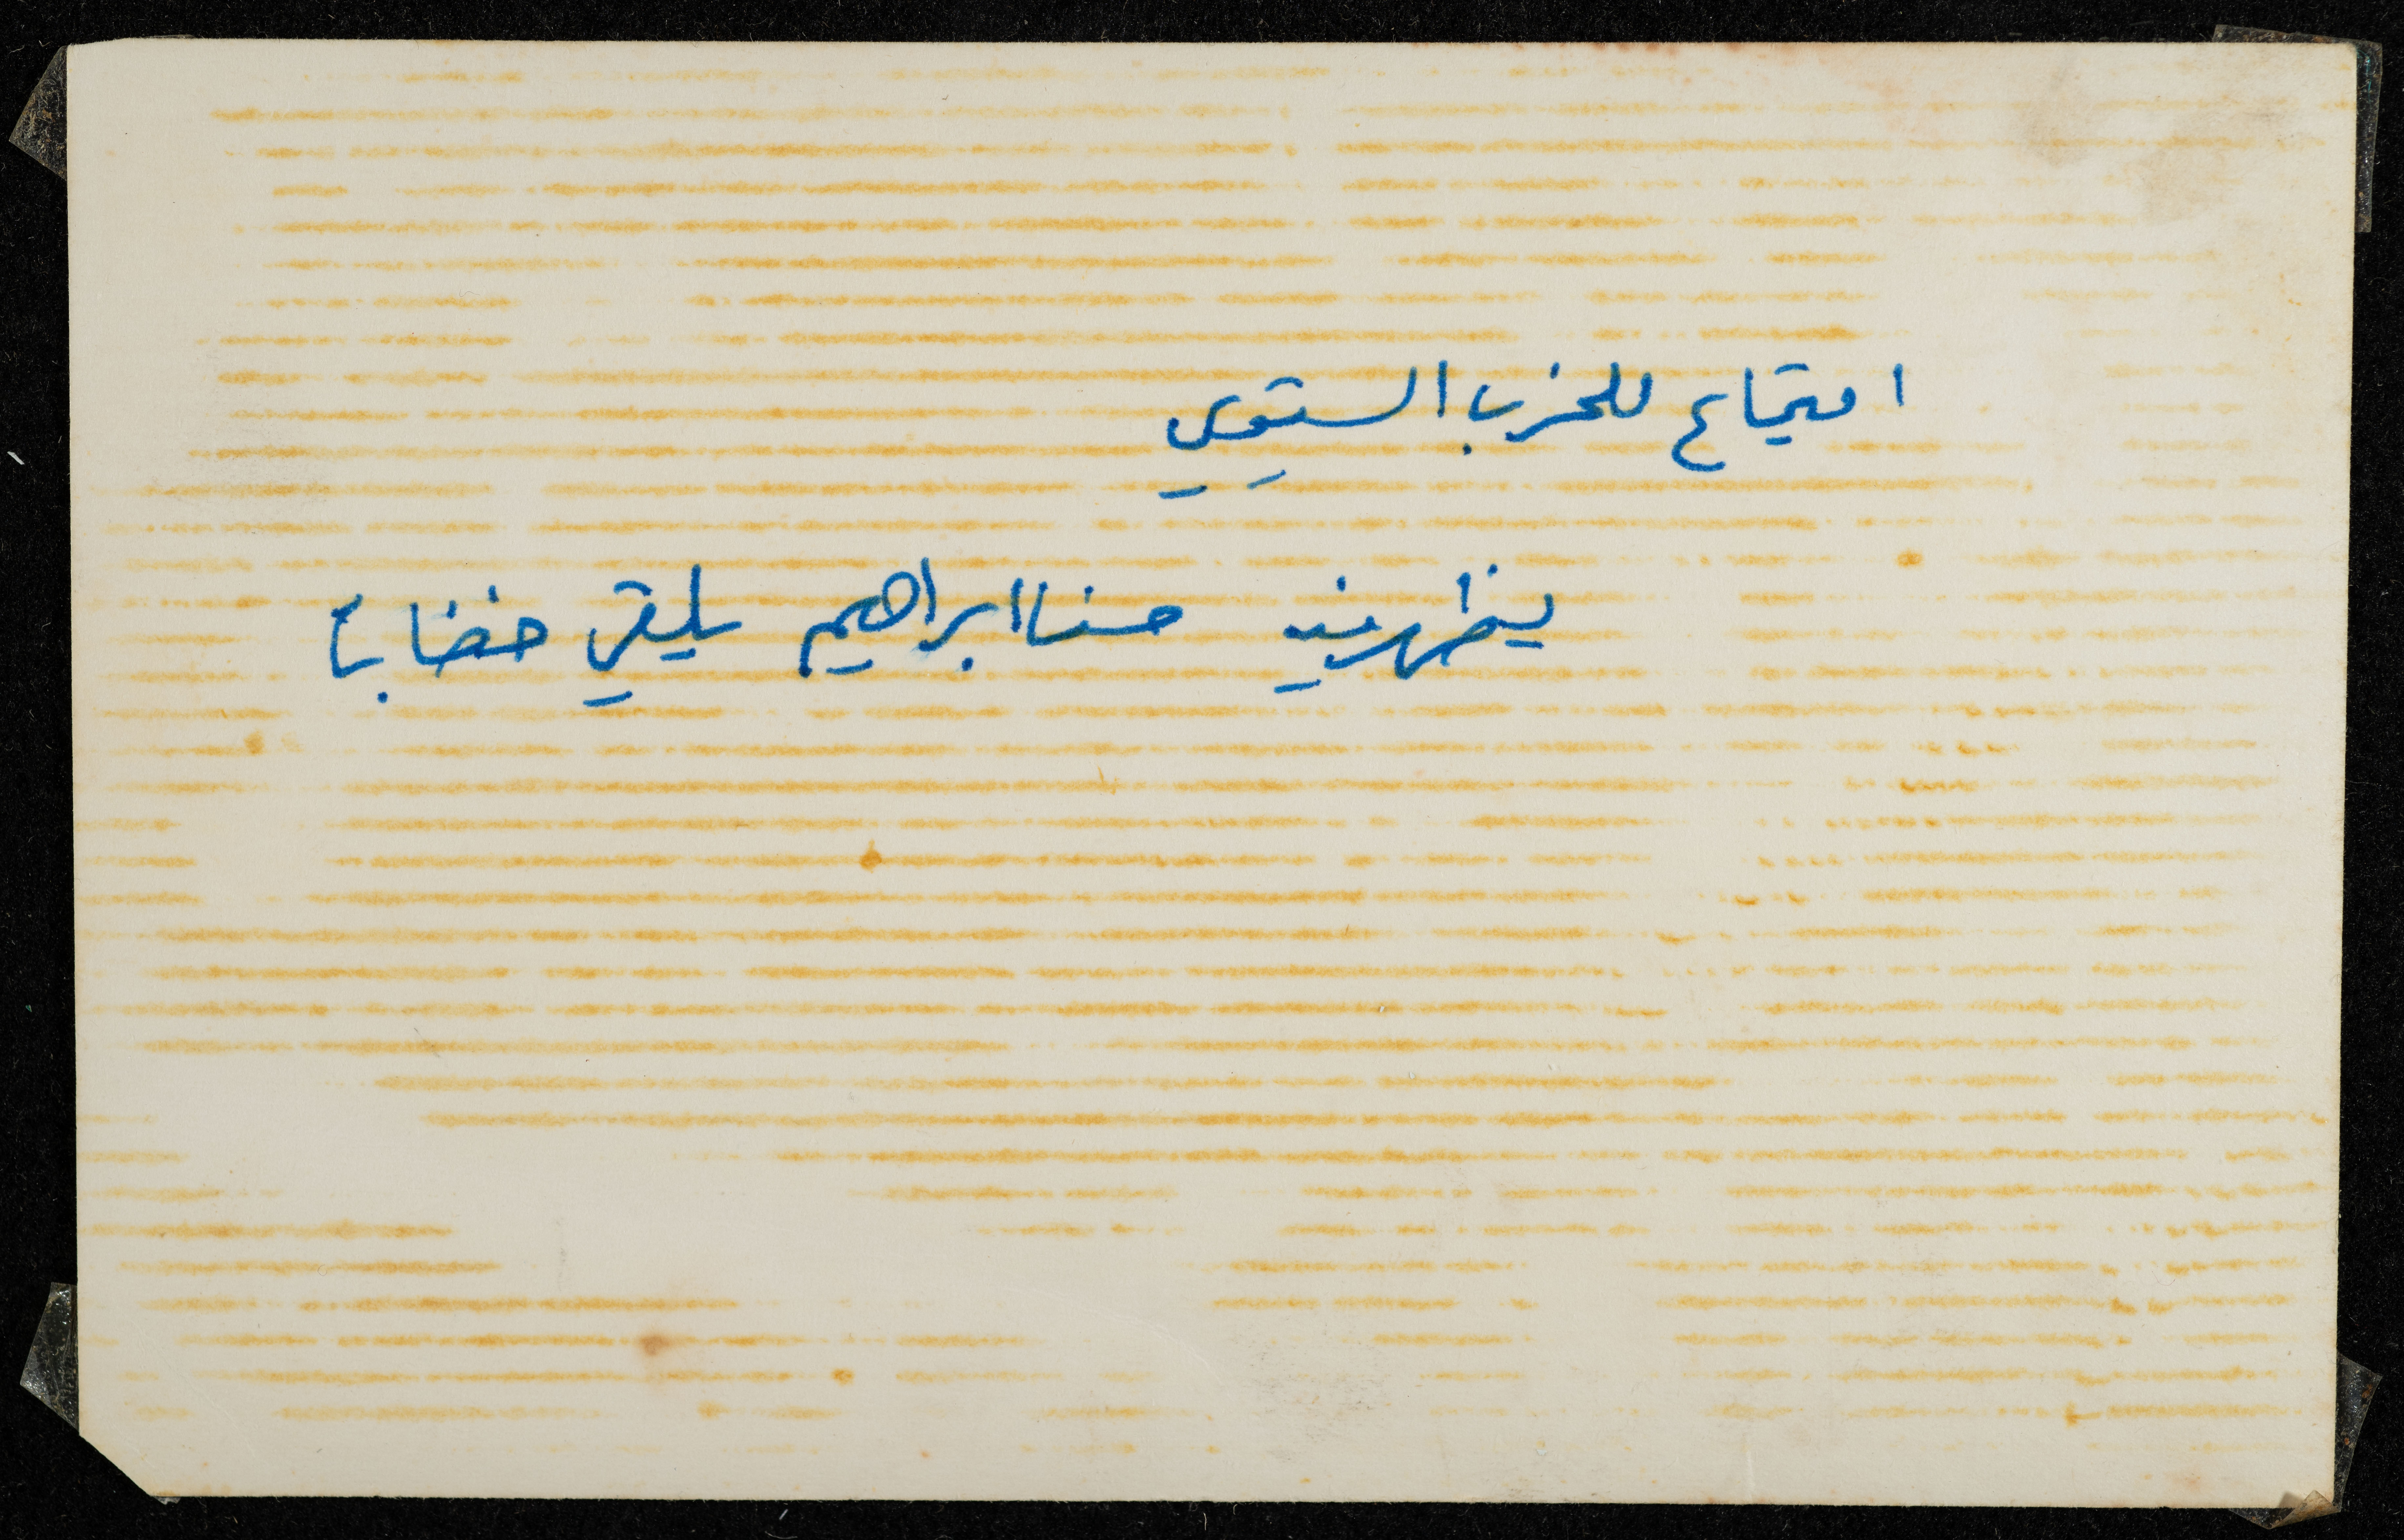 اجتماع للحزب الشيوعي
يظهر فيه حنا ابراهيم يلقي خطابا